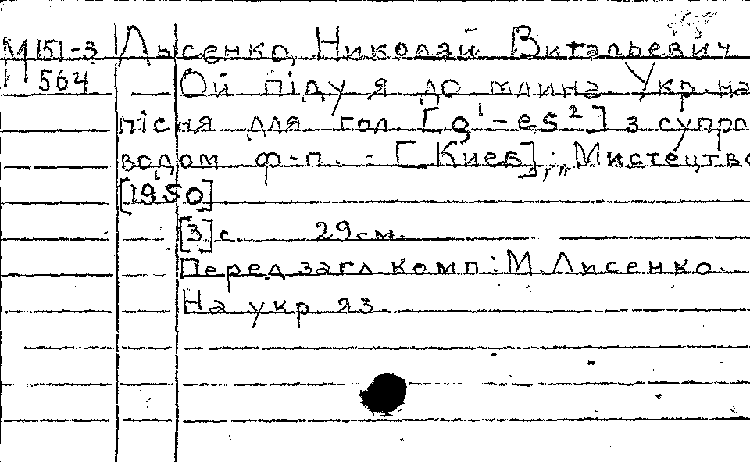 М 151-3 Лысенко, Николай Витальевич
564 Ой піду я до млина. Укр. на
пісня для гол. [g¹-es²] з супро
водом ф-п. - [Киев]: „Мистецтво
[1950]
[3] с. 29 см.
Перед загл. комп.: М. Лисенко.
На укр. яз.